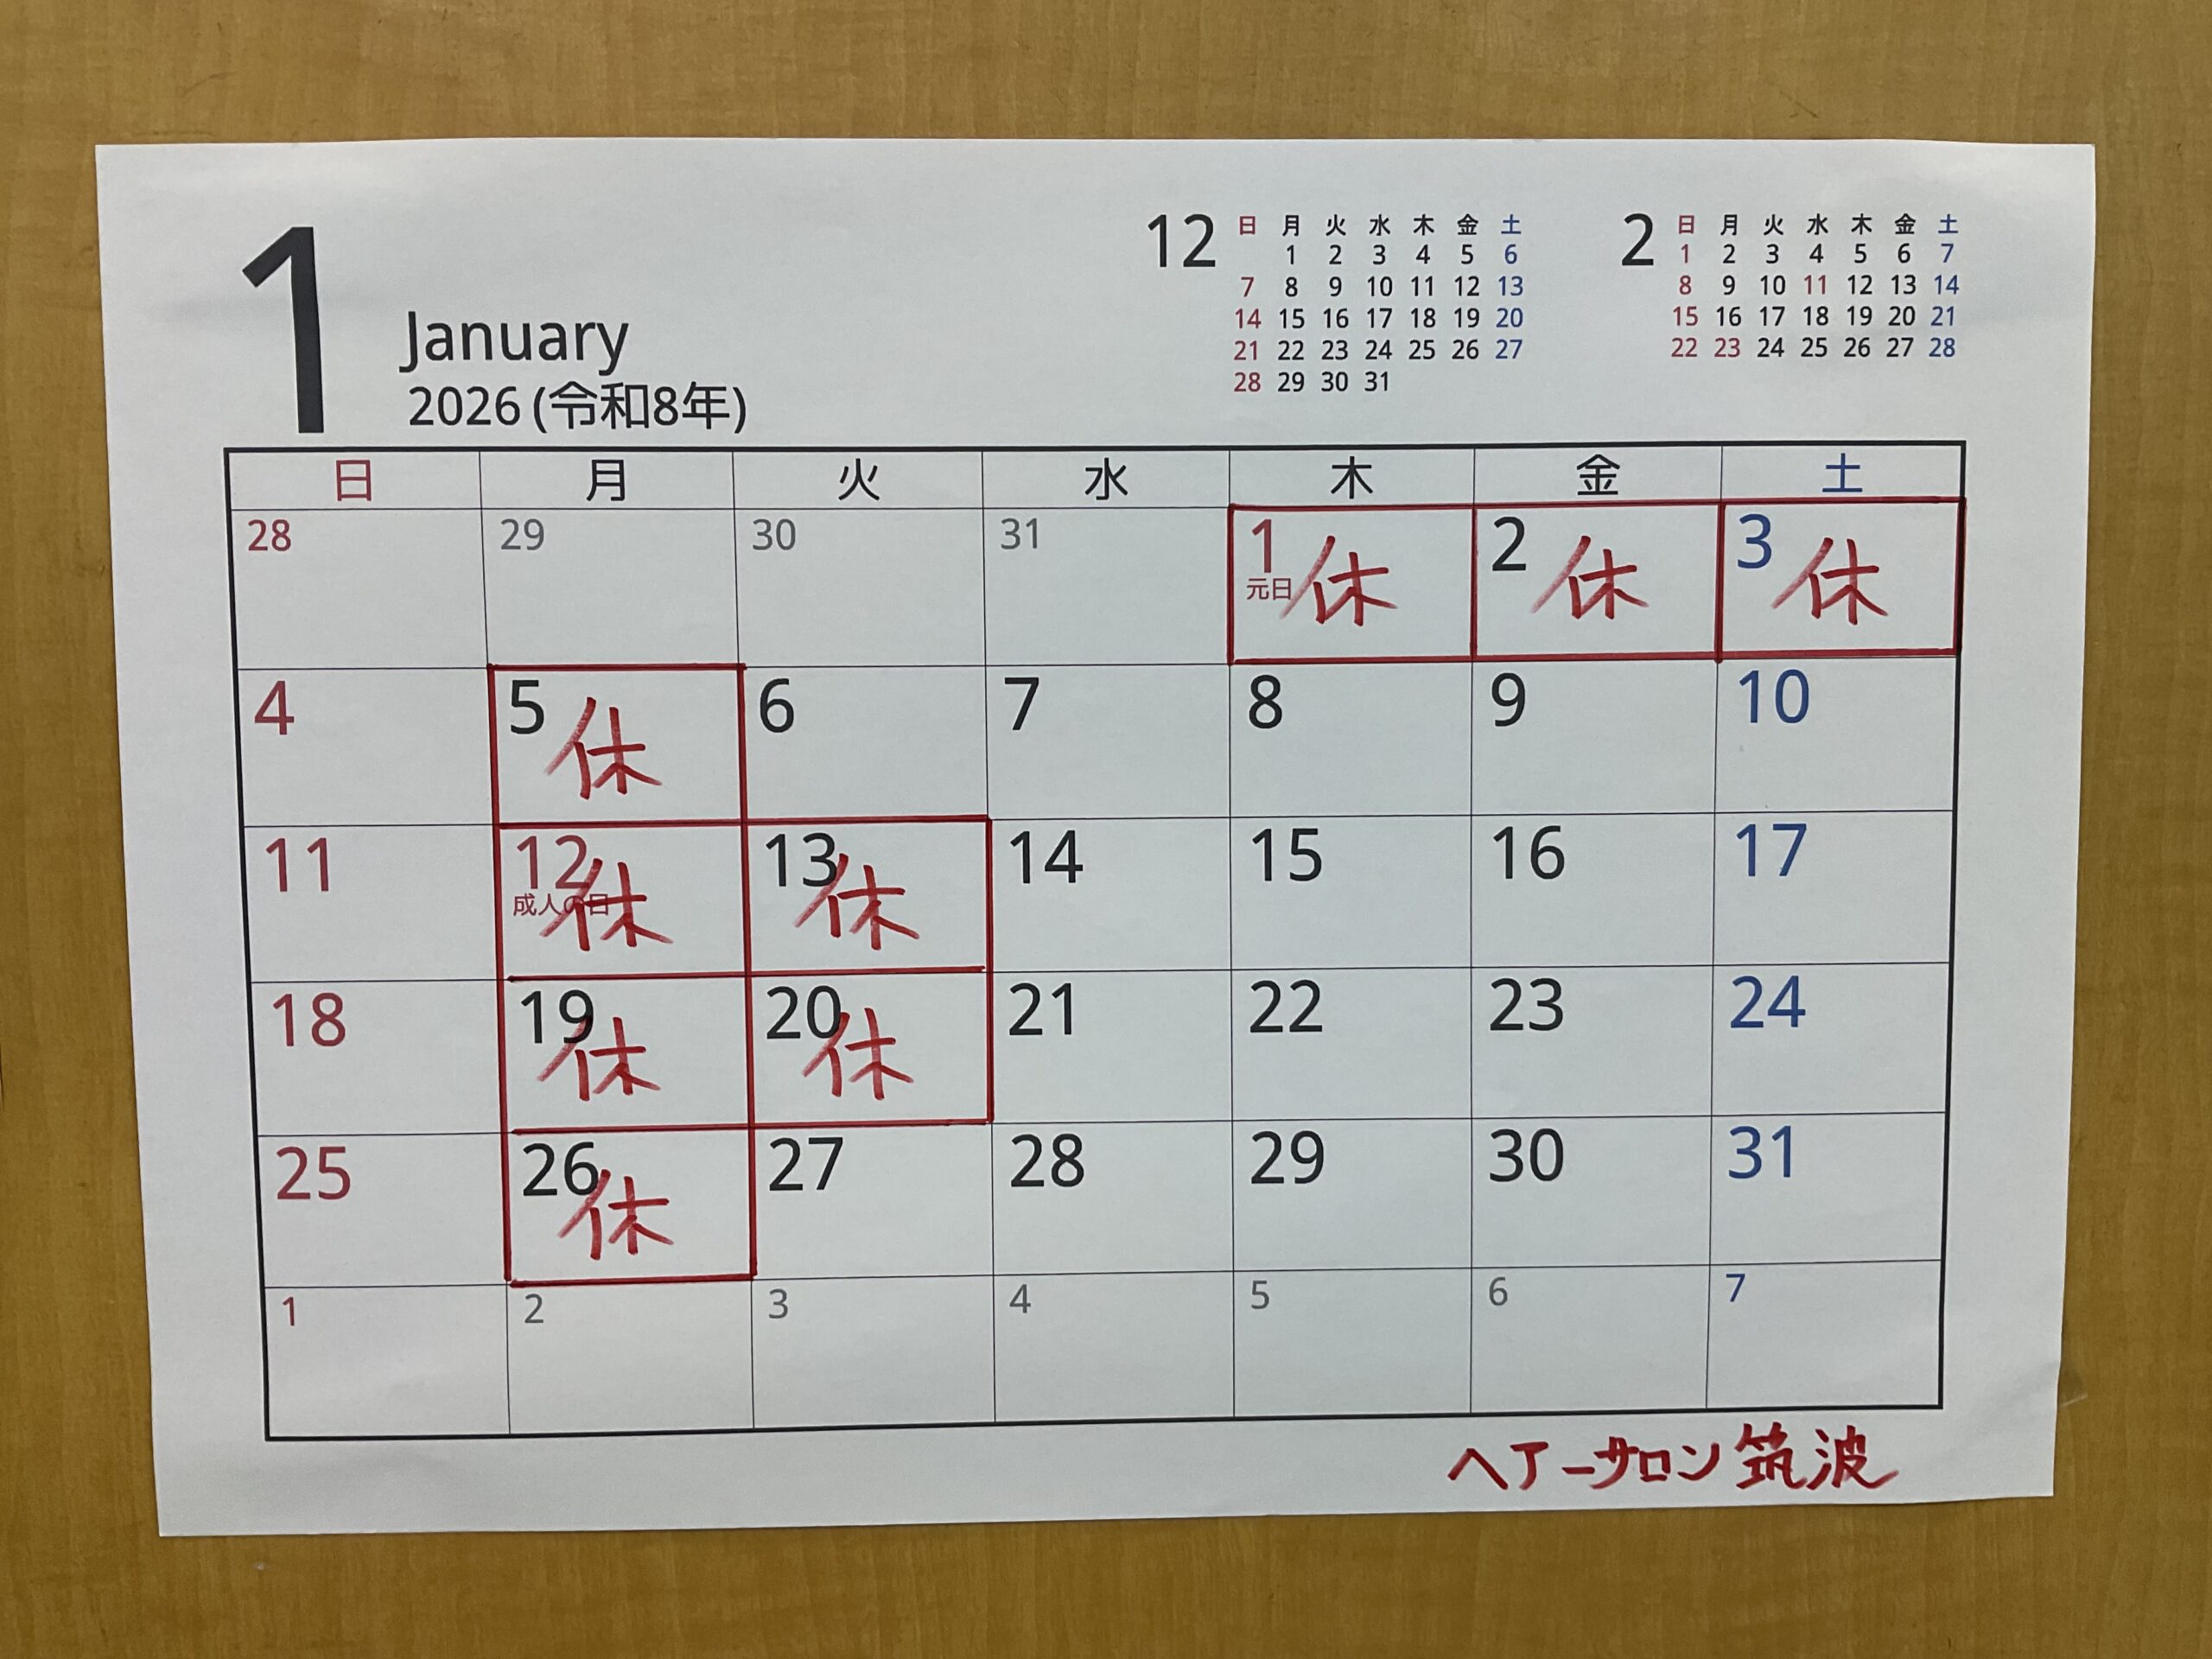 1
January
2026 (令和8年)
12
日 月 火 水 木 金 土
1 2 3 4 5 6
7 8 9 10 11 12 13
14 15 16 17 18 19 20
21 22 23 24 25 26 27
28 29 30 31
2
日 月 火 水 木 金 土
1 2 3 4 5 6 7
8 9 10 11 12 13 14
15 16 17 18 19 20 21
22 23 24 25 26 27 28
日 月 火 水 木 金 土
28 29 30 31 1 休 2 休 3 休
元日
4 5 休 6 7 8 9 10
11 12 休 13 休 14 15 16 17
成人の日
18 19 休 20 休 21 22 23 24
25 26 休 27 28 29 30 31
1 2 3 4 5 6 7
ヘアーサロン 筑波